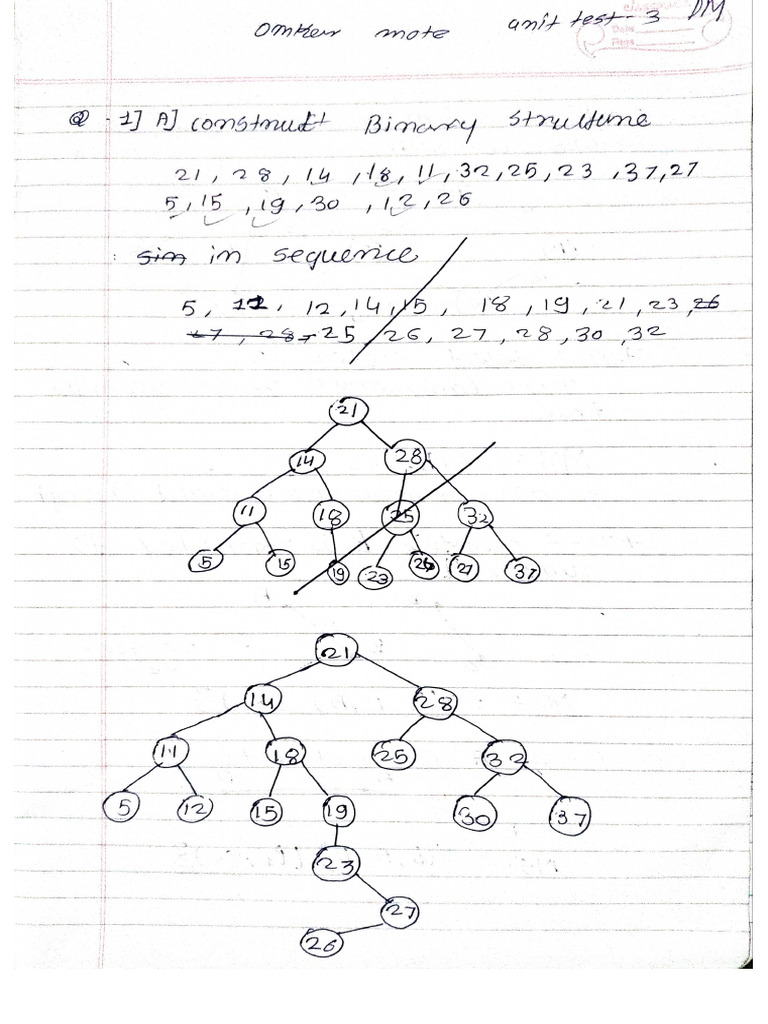 Omkar mote unit test - 3 DM
Date
Page
Q - 1] A] construct Binary structure
21, 28, 14, 18, 11, 32, 25, 23, 37, 27
5, 15, 19, 30, 12, 26
in sequence
5, 11, 12, 14, 15, 18, 19, 21, 23, 26
27, 28, 25, 26, 27, 28, 30, 32
21
14 28
11 18 25 32
5 15 19 23 26 27 37
21
14 28
11 18 25 32
5 12 15 19 30 37
23
27
26